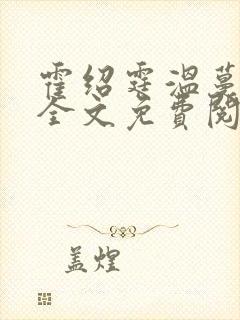 霍绍霆温蔓
全文免费阅
盖煌